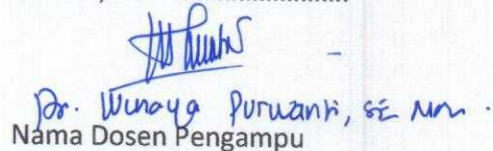 Dr. Wunaya Purwanti, SE MM.
Nama Dosen Pengampu